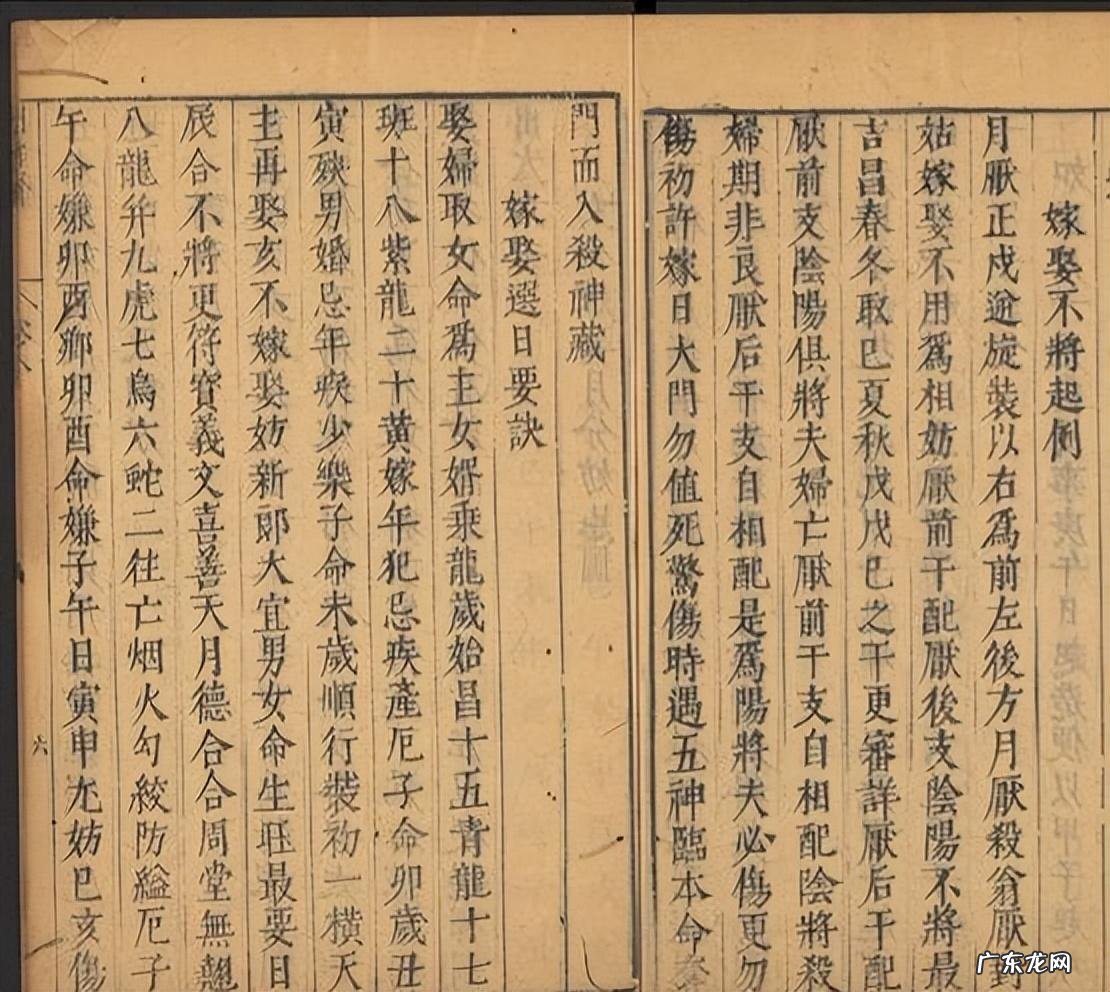 嫁娶不將起例
月厭正戍逆旋裝以右爲前左後方月厭殺翁厭對
姑嫁娶不用爲相妨厭前干配厭後支陰陽不將最
吉昌春冬取巳夏秋戊戊巳之干更審詳厭后干配
厭前支陰陽俱將夫婦亡厭前干支自相配陰將殺
婦期非良厭后干支自相配是爲陽將夫必傷更勿
傷初許嫁日大門勿值死驚傷時遇五神臨本命
門而入殺神藏
嫁娶選日要訣
娶婦取女命爲主女婿乘龍歲始昌十五青龍十七
班十八紫龍二十黃嫁年犯忌疾產厄子命卯歲丑
寅殃男婚忌年疾少樂子命未歲順行裝初一橫天
主再娶亥不嫁娶妨新郎大宜男女命生旺最要日
辰合不將更符寶義文喜善天月德合合周堂無翹
八龍并九虎七鳥六蛇二往亡烟火勾絞防縊厄子
午命嫌卯酉鄉卯酉命嫌子午日寅申尤妨巳亥傷
六
广东龙网